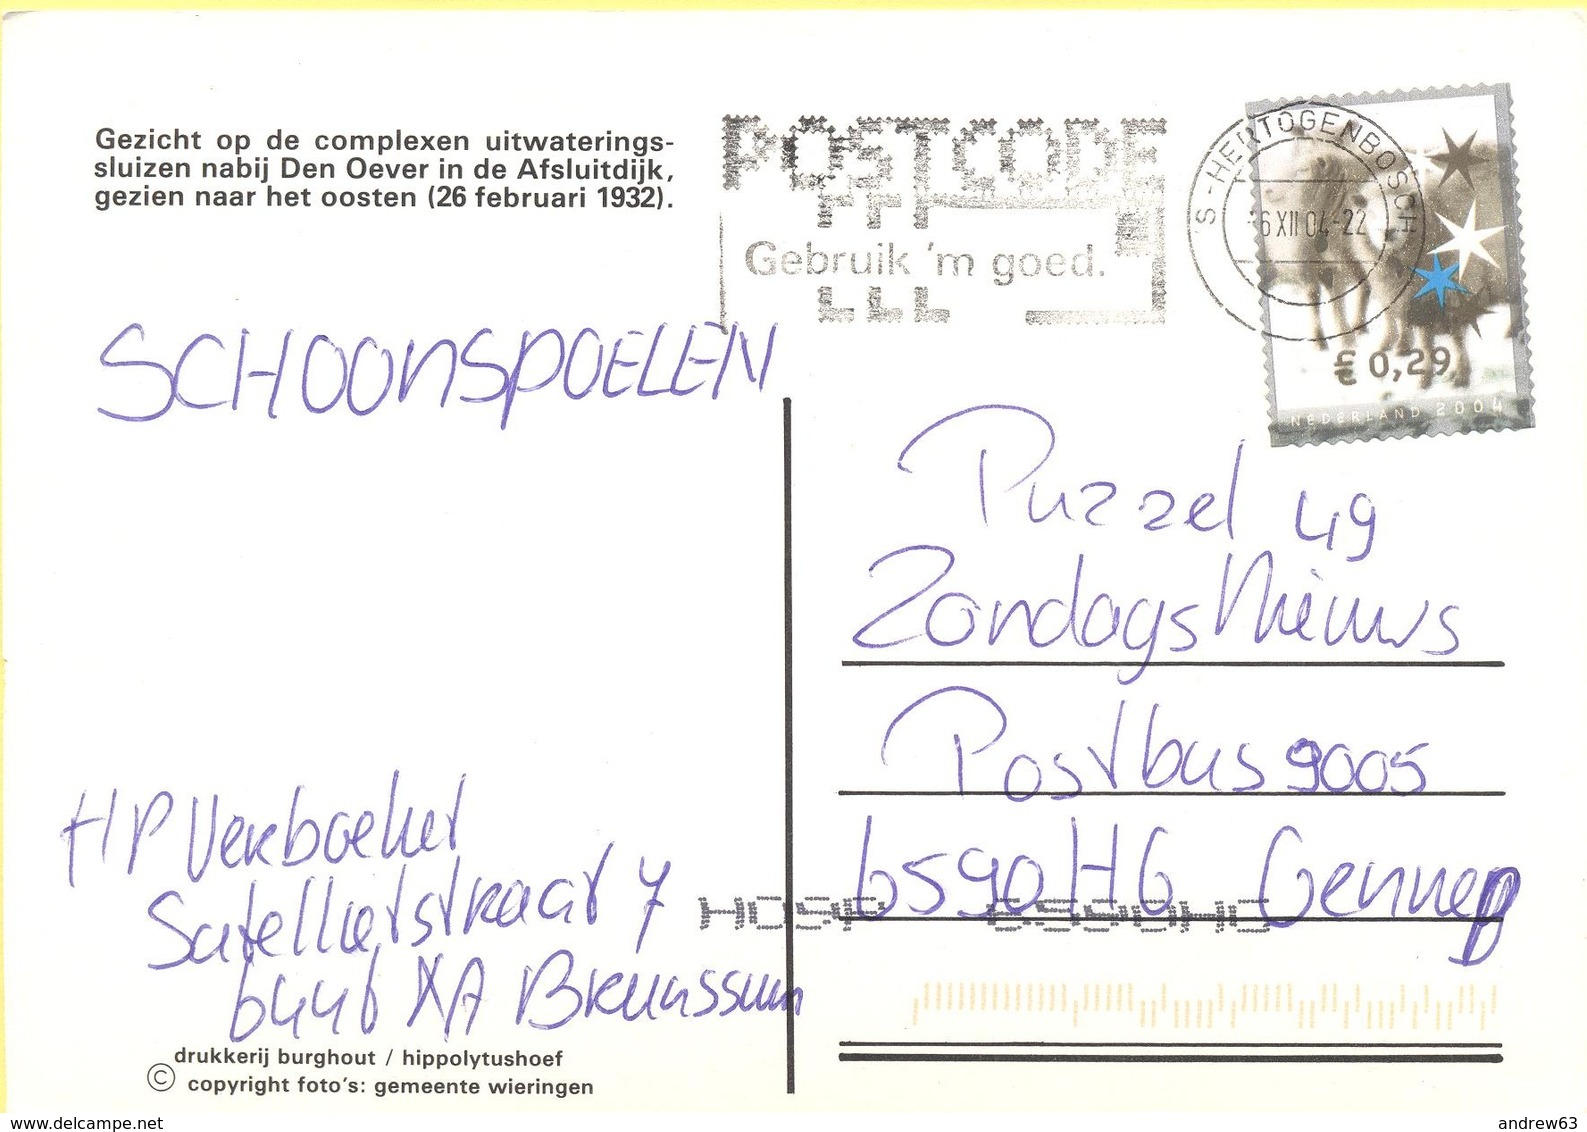 Gezicht op de complexen uitwaterings-
sluizen nabij Den Oever in de Afsluitdijk,
gezien naar het oosten (26 februari 1932).
POSTCODE
Gebruik 'm goed.
'S-HERTOGENBOSCH
6 XII 04-22
€ 0,29
NEDERLAND 2004
SCHOONSPOELEN
Puzzel 49
Zondags Nieuws
Postbus 9005
6590 HG Gennep
HP Verboeket
Satellietstraat 7
6446 XA Brunssum
drukkerij burghout / hippolytushoef
© copyright foto's: gemeente wieringen
www.delcampe.net
andrew63